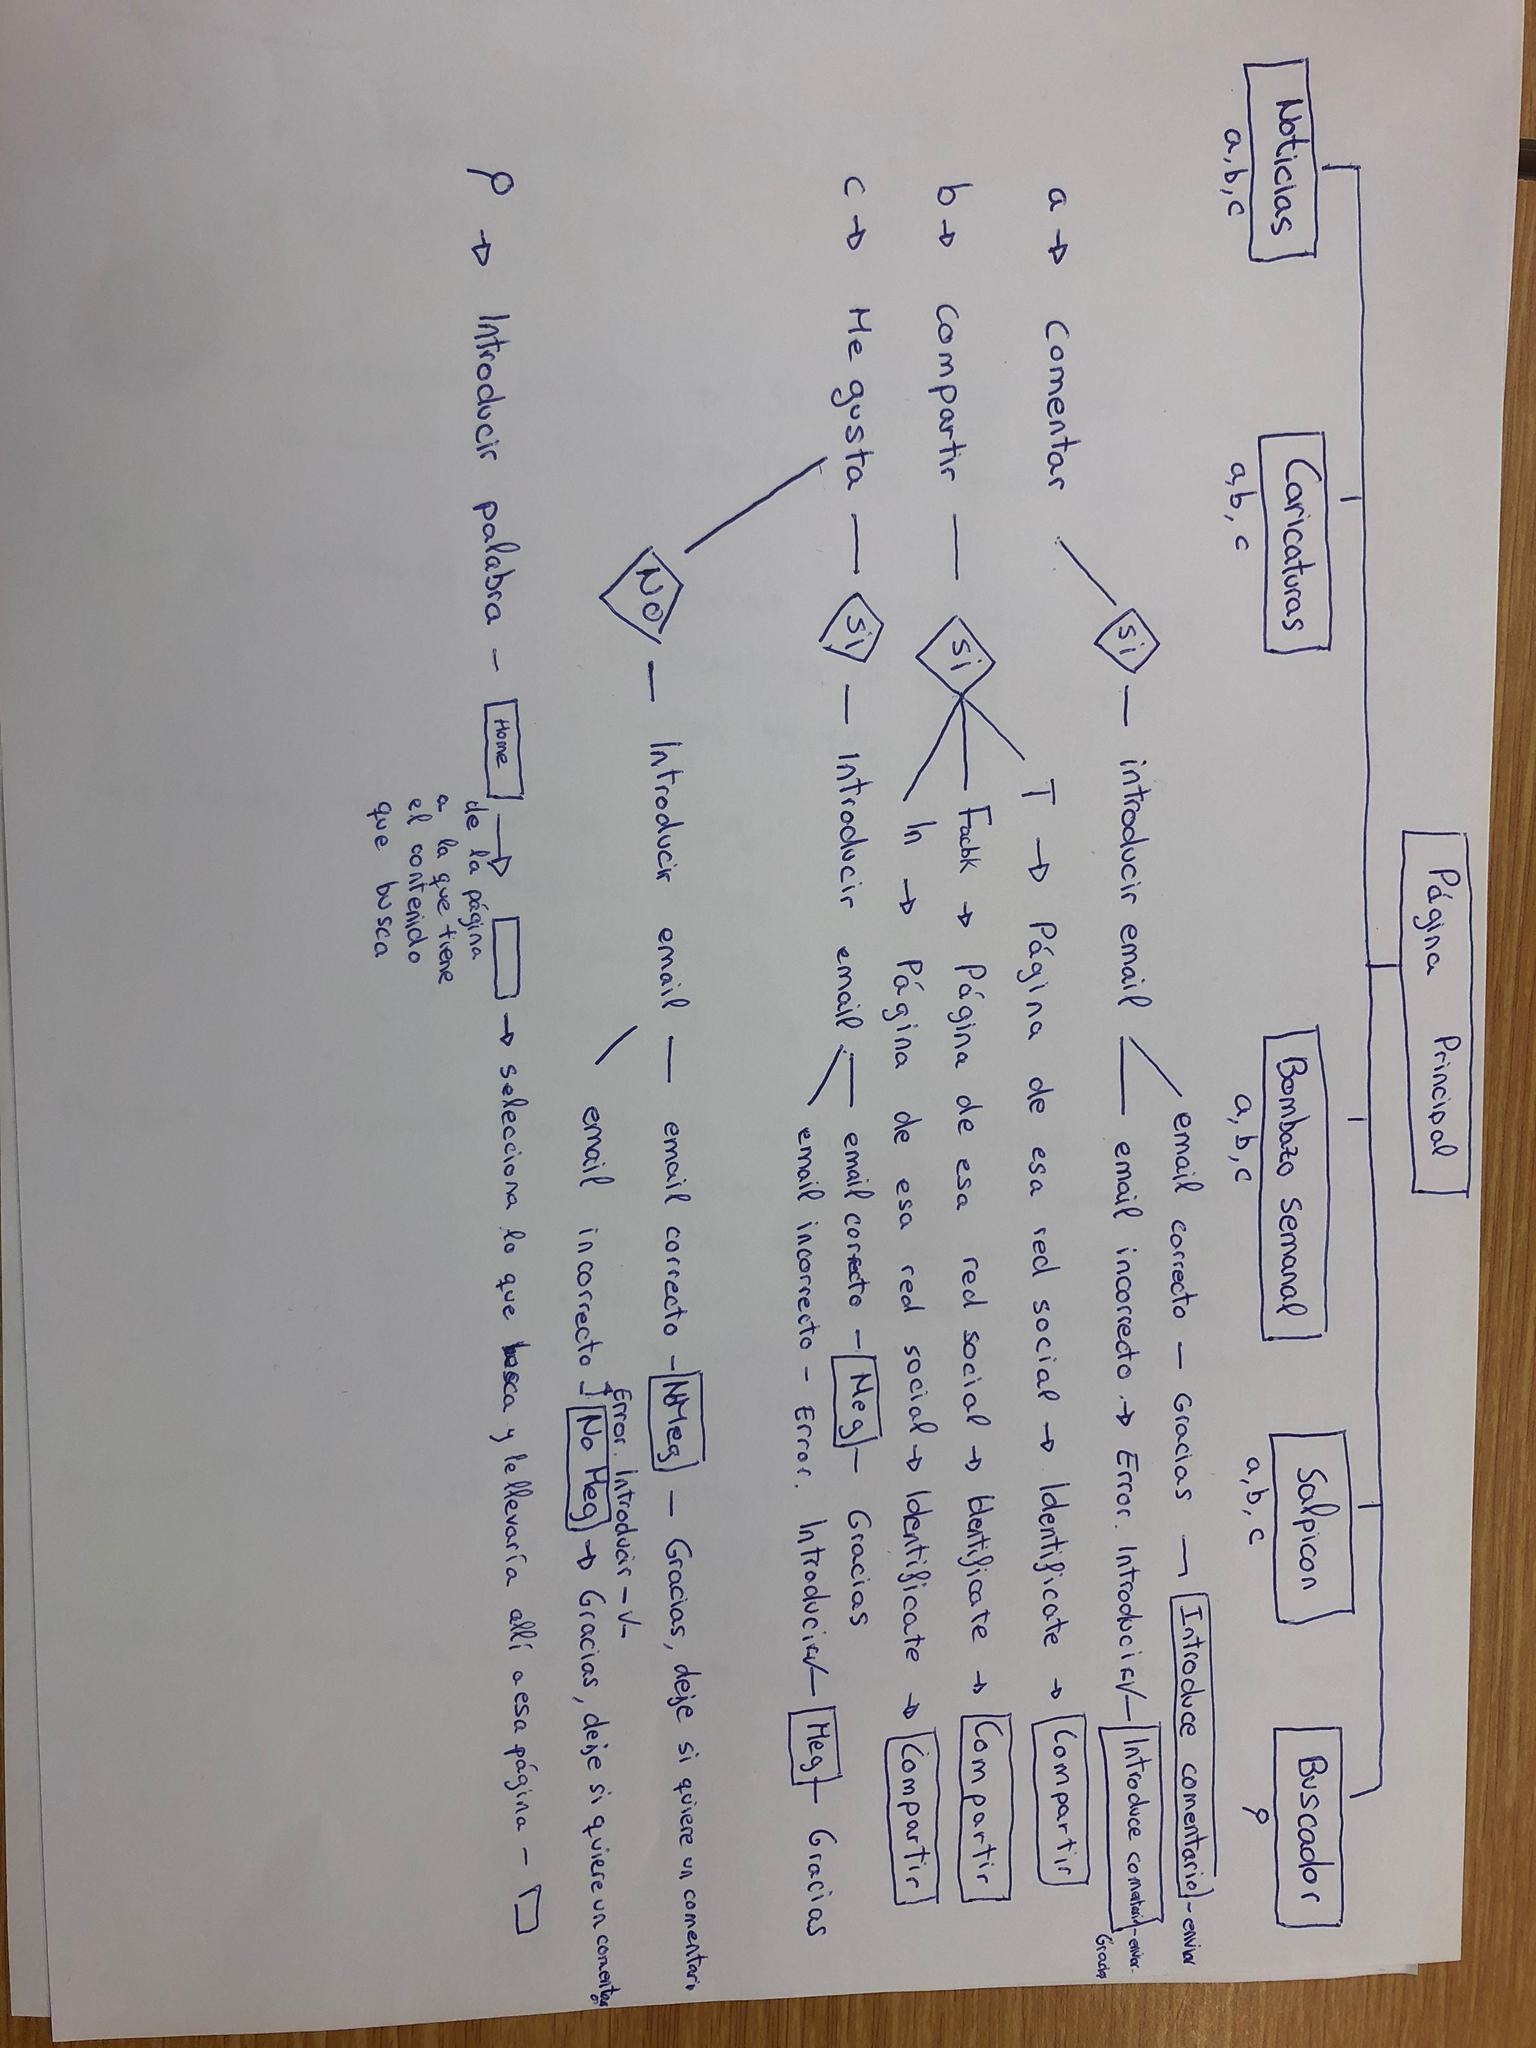 Página Principal
Noticias
a, b, c
Caricaturas
a, b, c
Bombazo Semanal
a, b, c
Salpicon
a, b, c
Buscador
a → Comentar
si
introducir email
email correcto - Gracias
Introduce comentario - enviar
email incorrecto → Error. Introducir
Introduce comentario - enviar.
Gracias
b → Compartir
si
T → Página de esa red social → Identificate → Compartir
Facbk → Página de esa red social → Identificate → Compartir
In → Página de esa red social → Identificate → Compartir
c → Me gusta
si
Introducir email
email correcto - Meg - Gracias
email incorrecto - Error. Introducir
Meg - Gracias
No
Introducir email
email correcto - NoMeg - Gracias, deje si quiere un comentario
email incorrecto
Error. Introducir
No Meg → Gracias, deje si quiere un comentario
→ Introducir palabra - Home →
→ selecciona lo que busca y le llevaría allí a esa página -
de la página
a la que tiene
el contenido
que busca